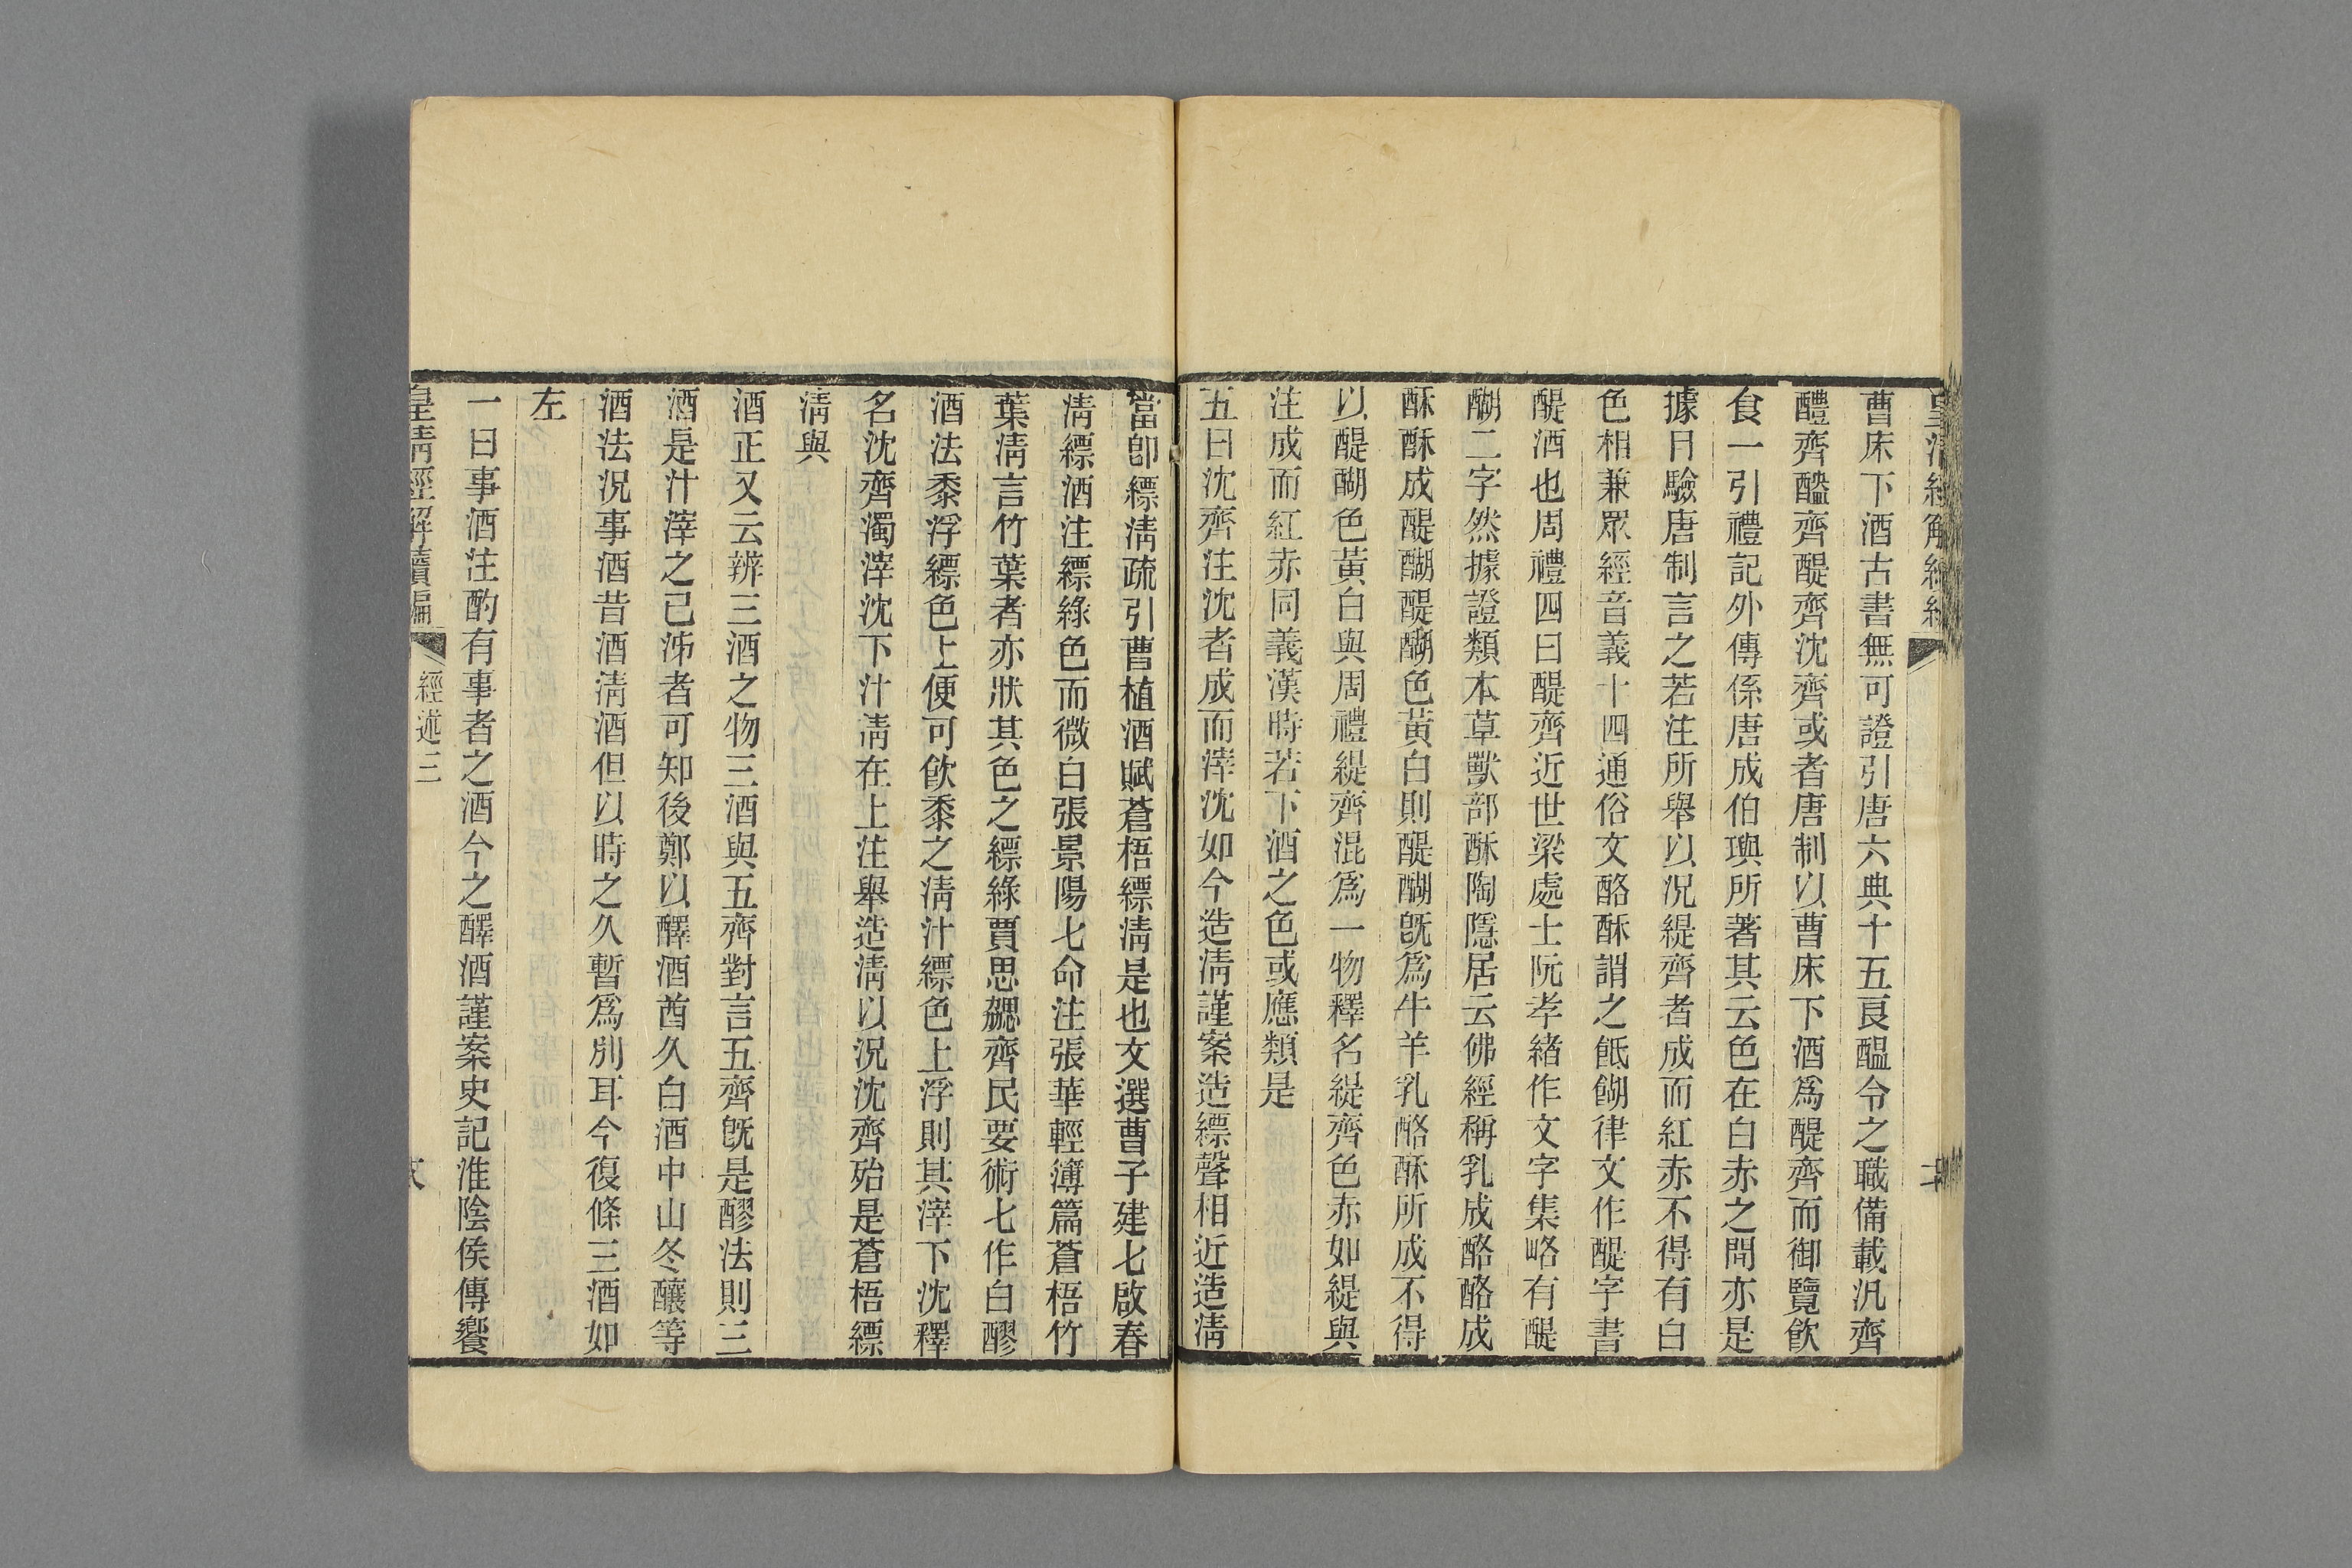 皇清經解續編
曹床下酒古書無可證引唐六典十五良醞令之職備載汎齊
醴齊醠齊醍齊沈齊或者唐制以曹床下酒爲醍齊而御覽飮
食一引禮記外傳係唐成伯璵所著其云色在白赤之閒亦是
據目驗唐制言之若注所舉以況緹齊者成而紅赤不得有白
色相兼眾經音義十四通俗文酪酥謂之䬫餬律文作醍字書
醍酒也周禮四曰醍齊近世梁處士阮孝緒作文字集略有醍
醐二字然據證類本草獸部酥陶隱居云佛經稱乳成酪酪成
酥酥成醍醐醍醐色黃白則醍醐旣爲牛羊乳酪酥所成不得
以醍醐色黃白與周禮緹齊混爲一物釋名緹齊色赤如緹與
注成而紅赤同義漢時若下酒之色或應類是
五曰沈齊注沈者成而滓沈如今造淸謹案造縹聲相近造淸
當卽縹淸疏引曹植酒賦蒼梧縹淸是也文選曹子建七啟春
淸縹酒注縹綠色而微白張景陽七命注張華輕簿篇蒼梧竹
葉淸言竹葉者亦狀其色之縹綠賈思勰齊民要術七作白醪
酒法黍浮縹色上便可飮黍之淸汁縹色上浮則其滓下沈釋
名沈齊濁滓沈下汁淸在上注舉造淸以況沈齊殆是蒼梧縹
淸與
酒正又云辨三酒之物三酒與五齊對言五齊旣是醪法則三
酒是汁滓之已泲者可知後鄭以醳酒酋久白酒中山冬釀等
酒法況事酒昔酒淸酒但以時之久暫爲別耳今復條三酒如
左
一曰事酒注酌有事者之酒今之醳酒謹案史記淮陰侯傳饗
皇淸經解續編
經述三